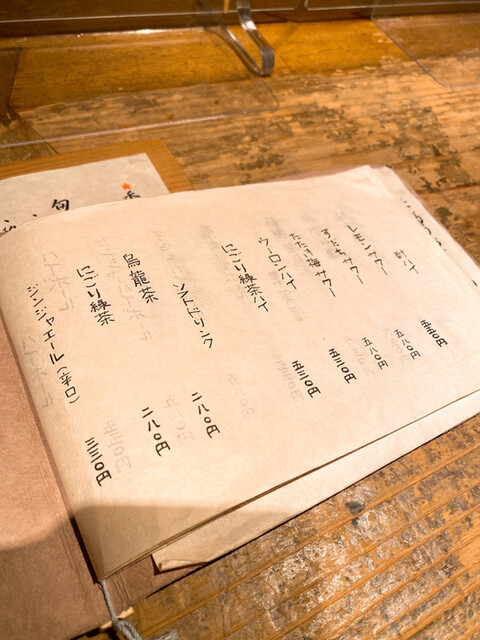 酎ハイ
レモンサワー 五五〇円
すだちサワー 五八〇円
たたき梅サワー 五八〇円
ウーロンハイ 五三〇円
にごり緑茶ハイ 五三〇円
ソフトドリンク
烏龍茶 二八〇円
にごり緑茶 二八〇円
ジンジャエール(辛口) 三三〇円
旬